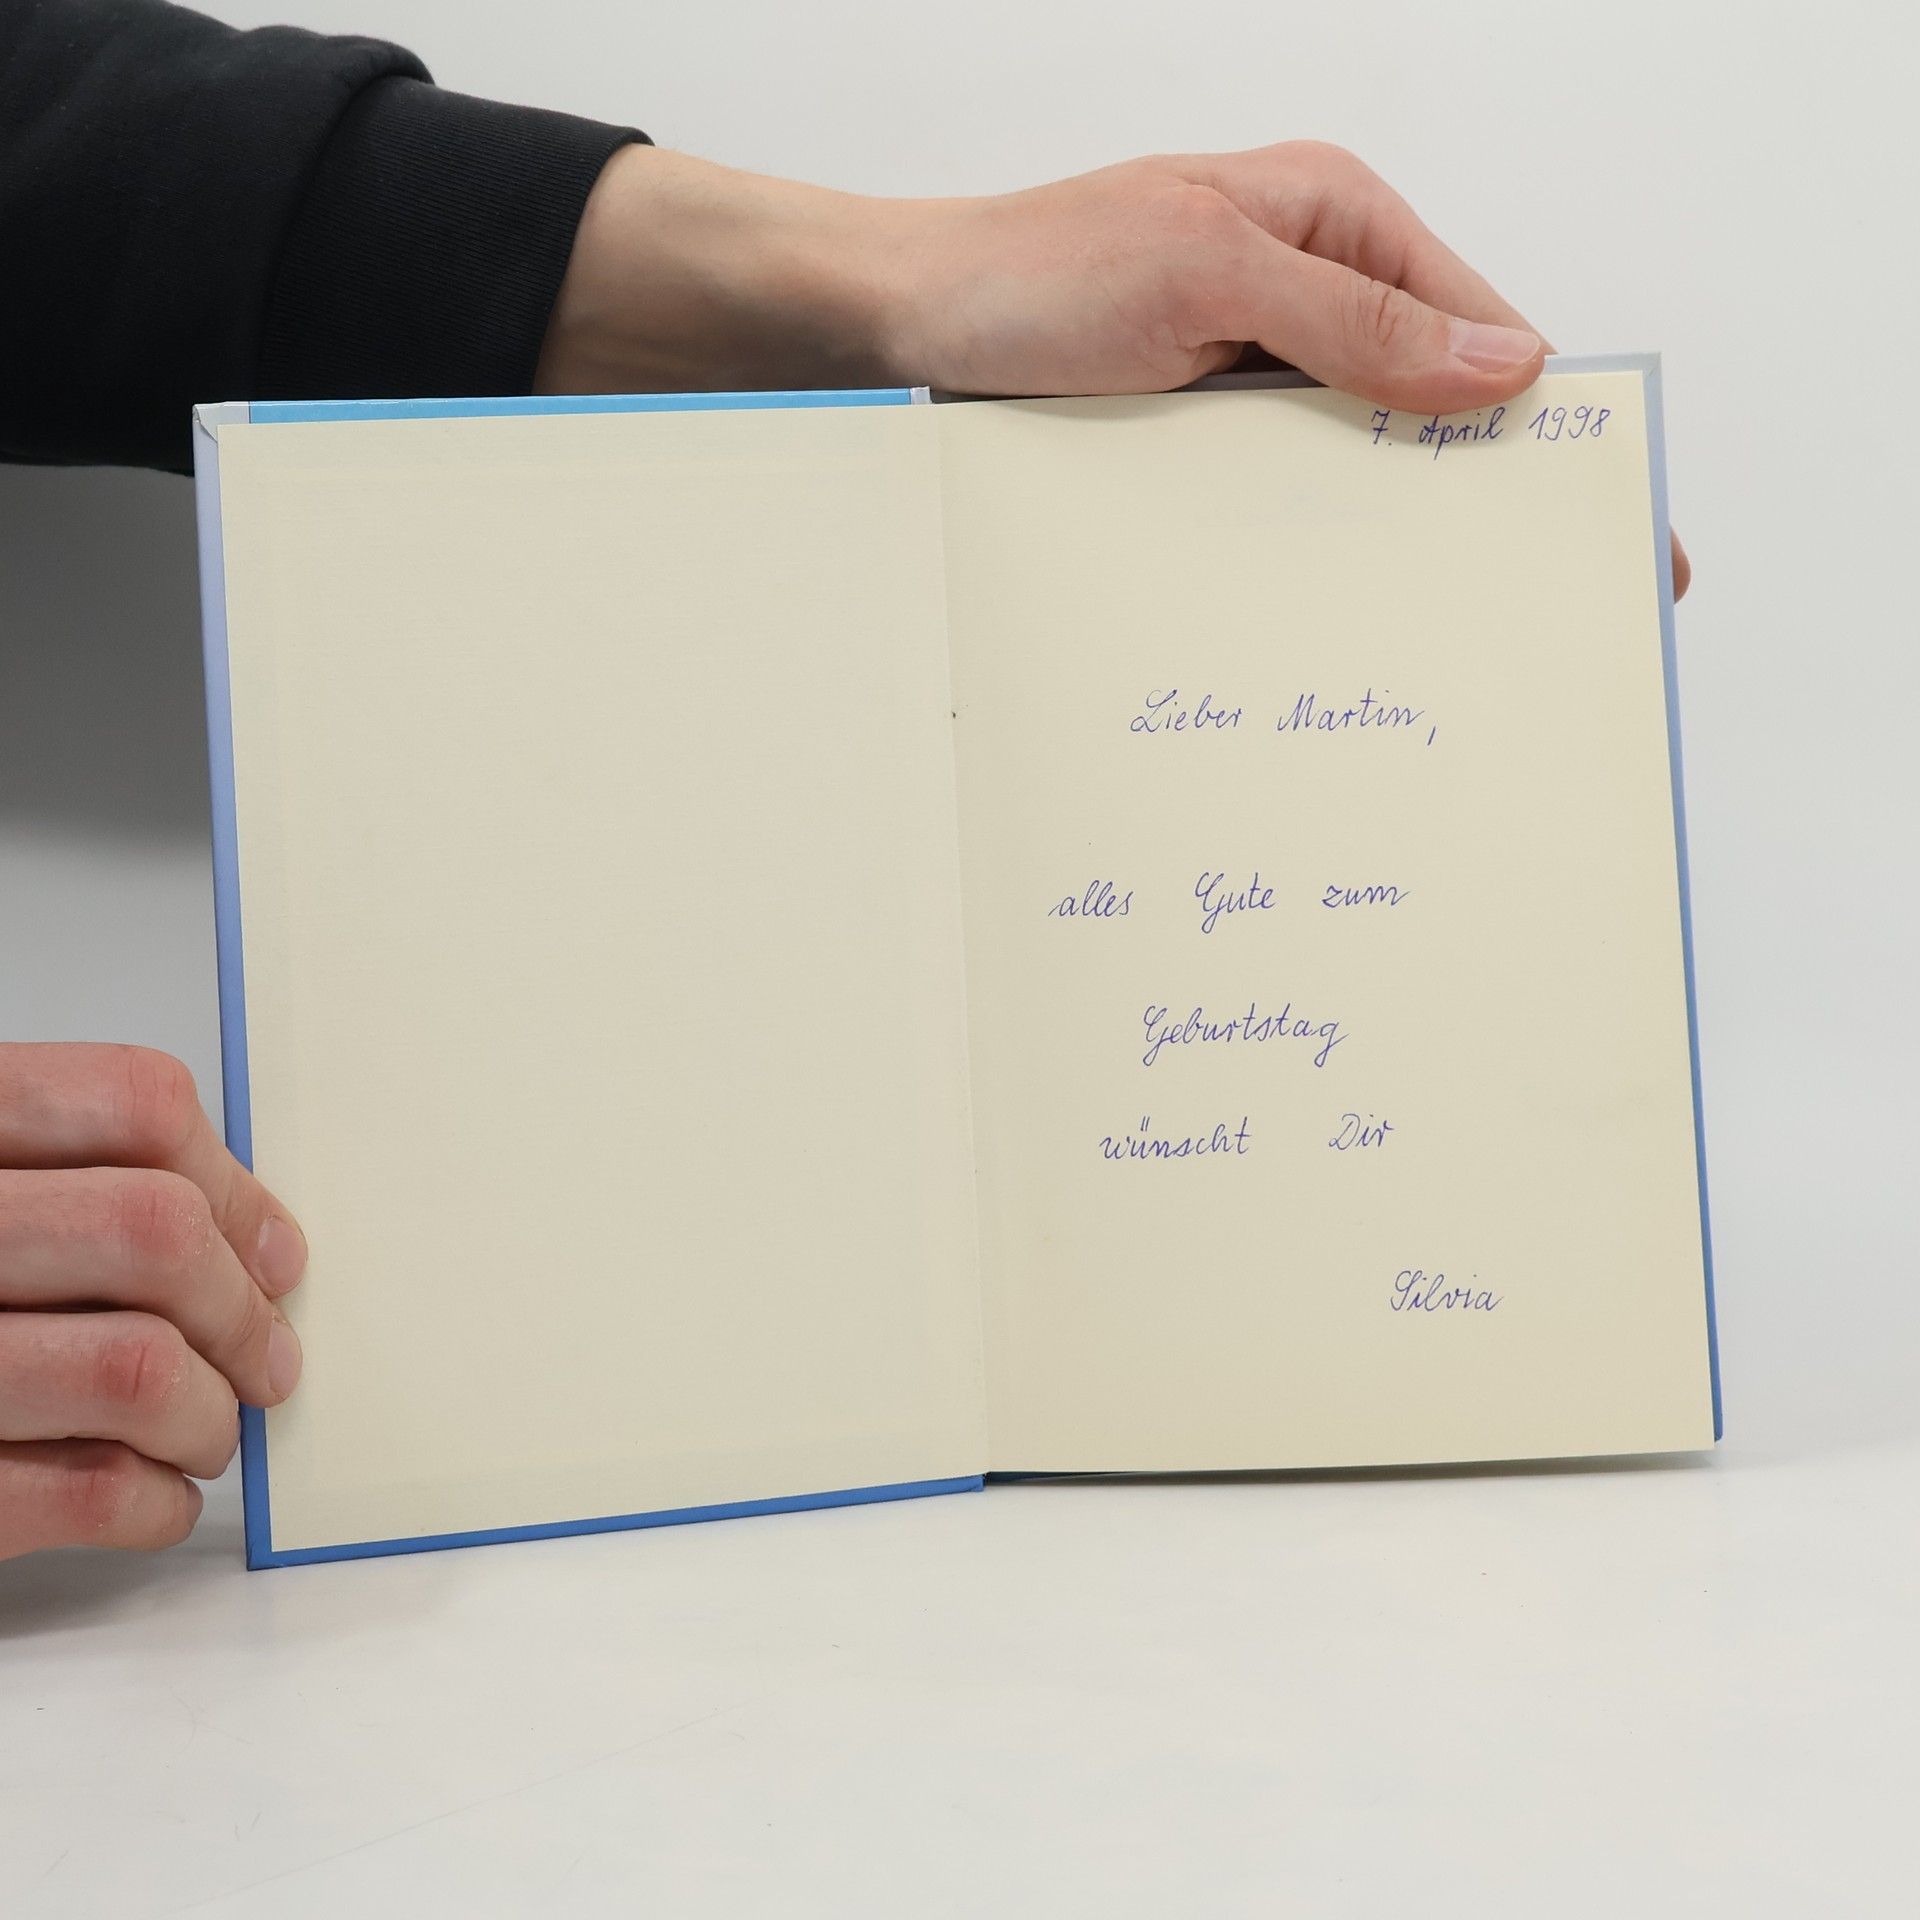 7. April 1998
Lieber Martin,
alles Gute zum
Geburtstag
wünscht Dir
Silvia